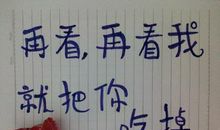 再看,再看我
就把你
吃掉